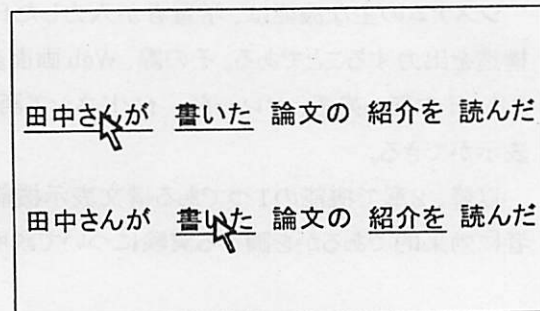 田中さんが 書いた 論文の 紹介を 読んだ
田中さんが 書いた 論文の 紹介を 読んだ